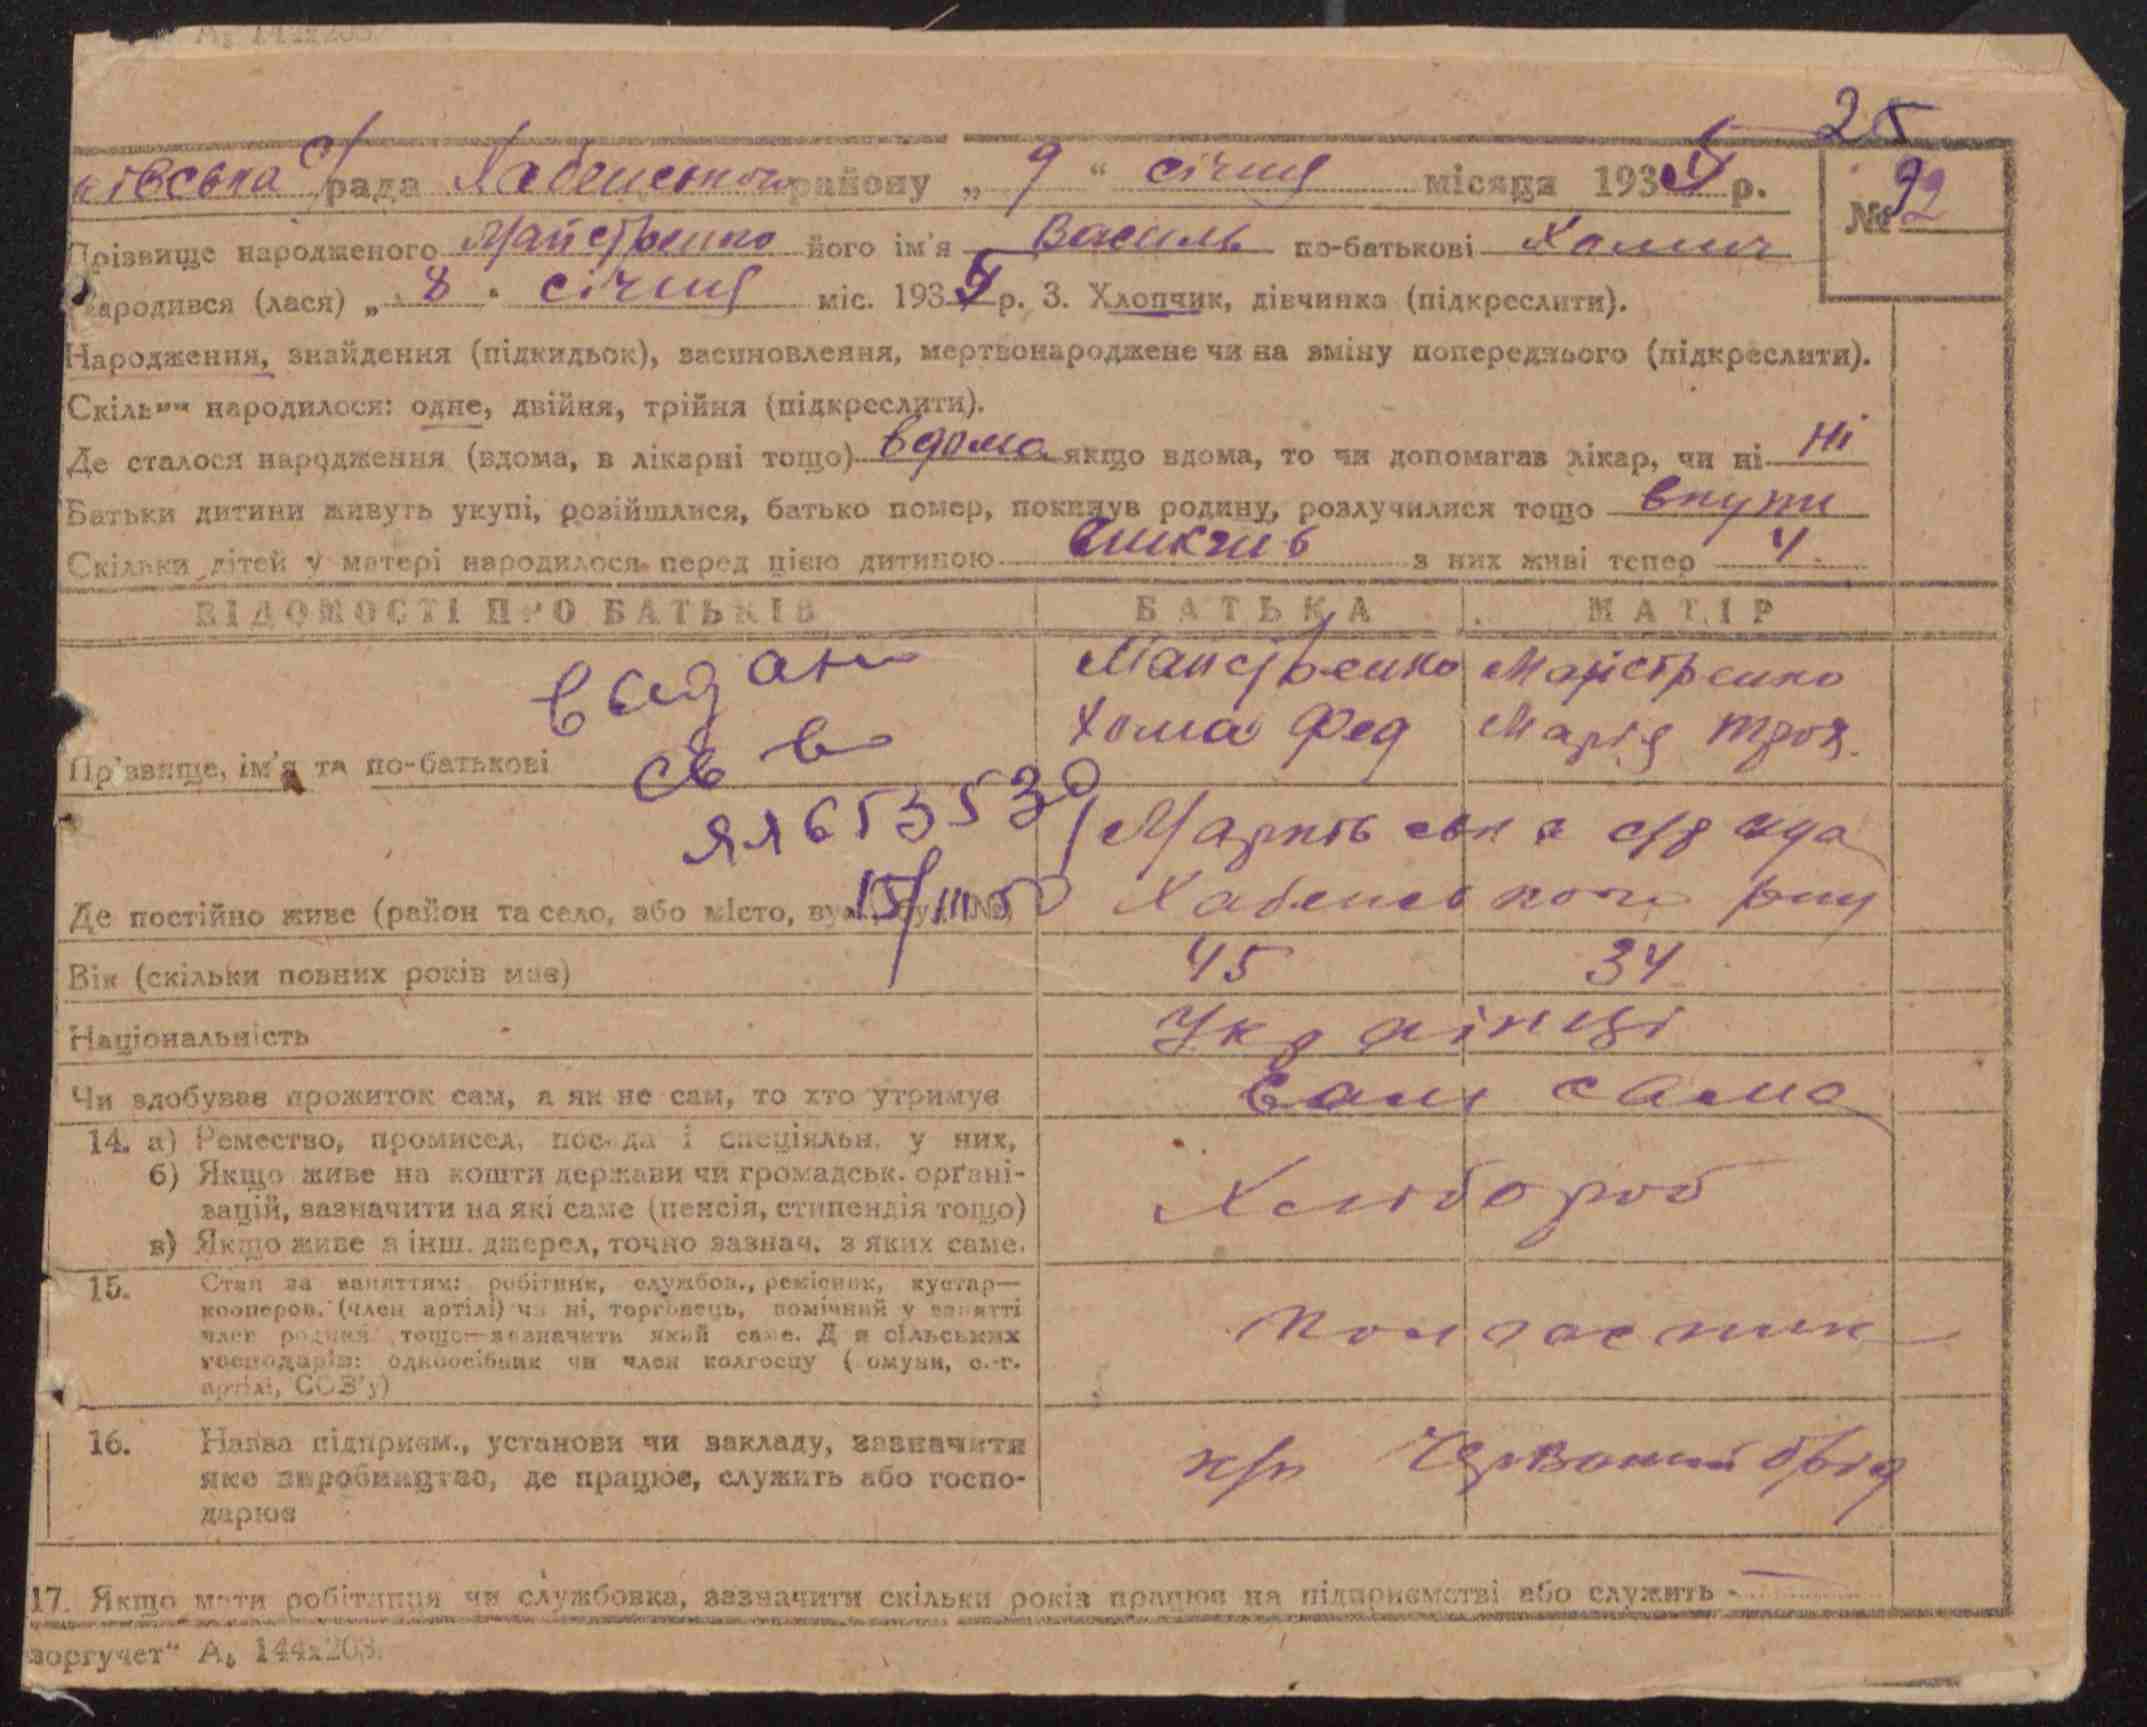 А₅ 144х203
25
ківська с/рада Хабенського району „ 9 “ січня місяця 193 р.
№ 92
Прізвище народженого Майстренко його ім'я Василь по-батькові Хомич
Народився (лася) „ 8 “ січня міс. 193 р. 3. Хлопчик, дівчинка (підкреслити).
Народження, знайдення (підкидьок), засиновлення, мертвонароджене чи на зміну попереднього (підкреслити).
Скільки народилося: одне, двійня, трійня (підкреслити).
Де сталося народження (вдома, в лікарні тощо) вдома якщо вдома, то чи допомагав лікар, чи ні Ні
Батьки дитини живуть укупі, розійшлися, батько помер, покинув родину, розлучилися тощо вкупи
Скільки дітей у матері народилося перед цією дитиною з них живі тепер 4
ВІДОМОСТІ ПРО БАТЬКІВ БАТЬКА МАТІР
выдано Майстренко Майстренко
Хома Фед Марія Троя.
Пр'звище, ім'я та по-батькові
св во
ЯЛ 653530
Марківська с/рада
15/III 50
Де постійно живе (район та село, або місто, Хабенського р-ну
Вік (скільки повних років має) 45 34
Національність Українці
Чи здобуває прожиток сам, а як не сам, то хто утримує сам сама
14. а) Ремество, промисел, посада і спеціяльн. у них,
б) Якщо живе на кошти держави чи громадськ. орґані-
зацій, зазначити на які саме (пенсія, стипендія тощо) Хлібороб
в) Якщо живе з інш. джерел, точно зазнач. з яких саме.
15. Стан за заняттям: робітник, службов., ремісник, кустар—
кооперов. (член артілі) чи ні, торговець, помічний у занятті
член родини тощо—зазначити який саме. Для сільських колгоспник
господарів: одноосібник чи член колгоспу (комуни, с.-г.
артілі, СОЗ'у)
16. Назва підприєм., установи чи закладу, зазначити
яке виробництво, де працює, служить або госпо- к/г Червоний
дарює
17. Якщо мати робітниця чи службовка, зазначити скільки років працює на підприємстві або служить -
зоргучет“ А₅ 144х203.